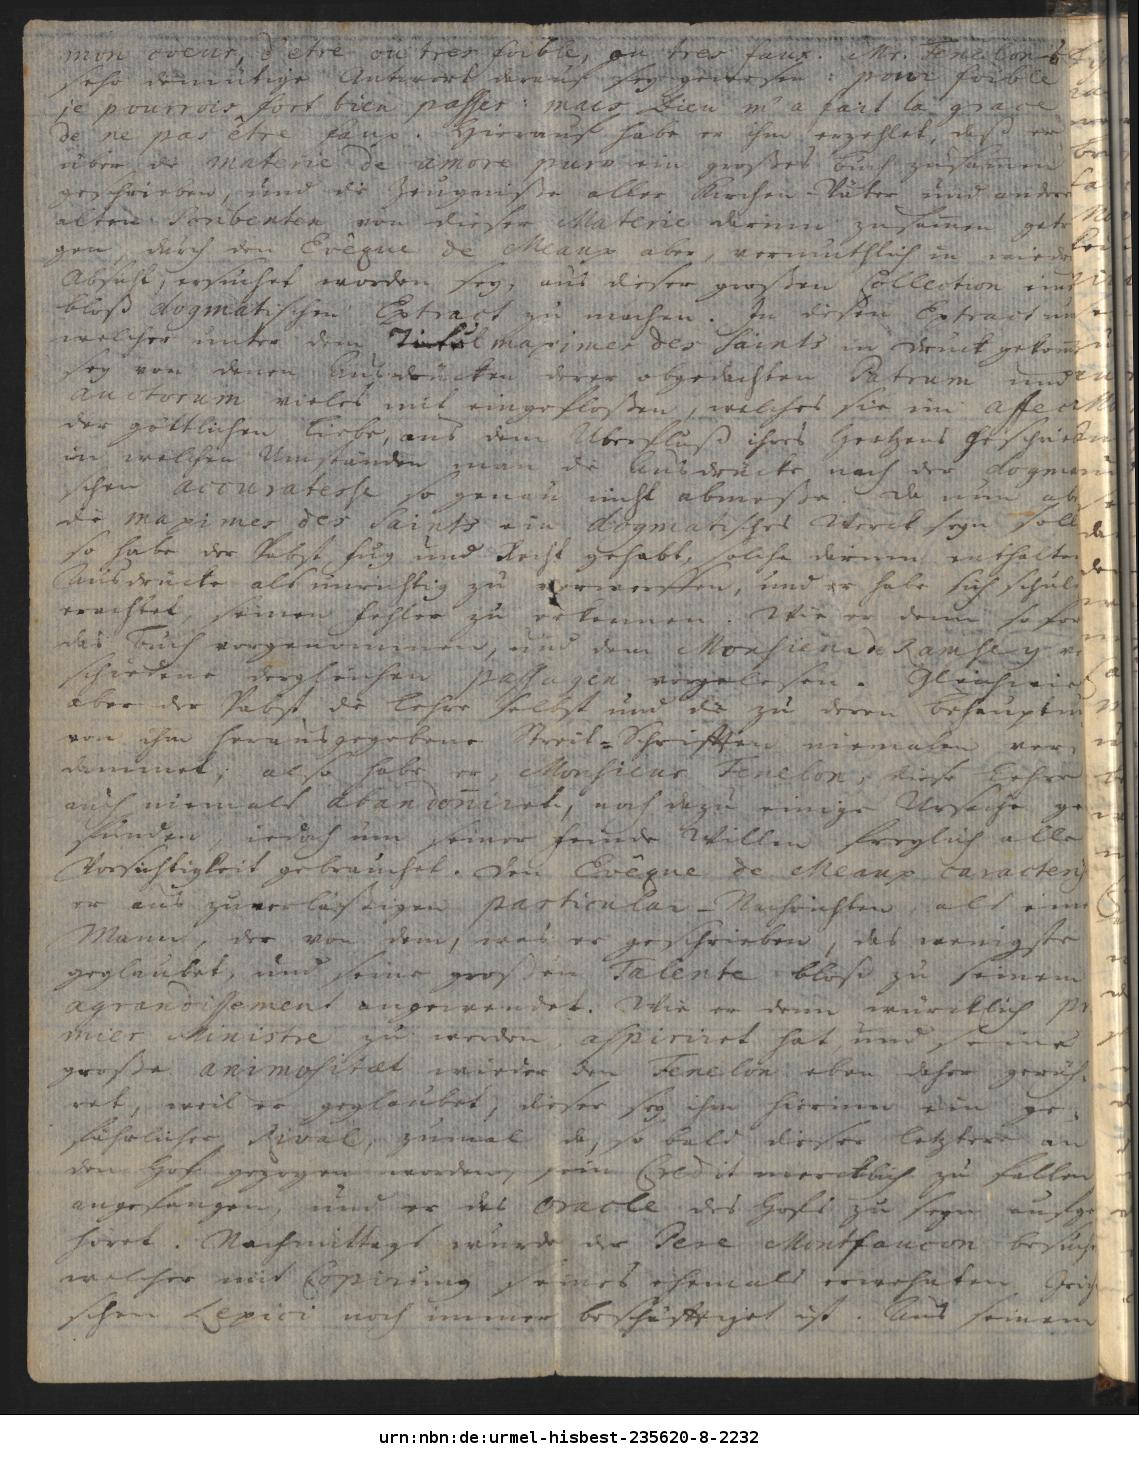 mon coeur, d'etre ou tres foible, ou tres faux. Mr. Fenelon
sehr demütige Antwort darauf sey gewesen: pour foible
je pourrois fort bien passer: mais Dieu m'a fait la grace
de ne pas être faux. Hierauf habe er ihm erzehlet, daß er
über die materie de amore puro ein großes Buch zusammen
geschrieben, und die Zeugniße aller Kirchen-Väter und andrer
alten Scribenten von dieser Materie darinn zusammen getra
gen, durch den Evêque de Meaux aber, vermuthlich in wiedri
Absicht, ersuchet worden sey, aus dieser großen Collection einen
bloß dogmatischen Extract zu machen. In diesen Extract nun
welcher unter dem Titul maximes des Saints in Druck gekommen
sey von denen Ausdrücken derer obgedachten Patrum und
auctorum vieles mit eingefloßen, welches sie im affectu
der göttlichen Liebe, aus dem Uberfluß ihres Hertzens geschrieben
in welchen Umständen man die Ausdrücke nach der dogmati
schen accuratesse so genau nicht abmeße. Da nun aber
die maximes des Saints ein dogmatisches Werck seyn sollen
so habe der Pabst Fug und Recht gehabt, solche darinn enthaltene
Ausdrücke als unrichtig zu verwerffen, und er habe sich schuldig
erachtet, seinen Fehler zu erkennen. Wie er denn sofort
das Buch vorgenommen, und dem Monsieur de Ramsey ver
schiedene dergleichen passagen vorgelesen. Gleichwie
aber der Pabst die Lehre selbst und die zu deren Behauptung
von ihm herausgegebene Streit-Schrifften niemalen ver
dammet; also habe er, Monsieur Fenelon, diese Lehre
auch niemals abandonniret, noch dazu einige Ursache ge
funden, iedoch um seiner Feinde Willen freylich alle
Vorsichtigkeit gebrauchet. Den Evêque de Meaux caracteris
er aus zuverläßigen particular-Nachrichten als einen
Mann, der von dem, was er geschrieben, das wenigste
geglaubet, und seine großen Talente bloß zu seinem
agrandissement angewendet. Wie er denn würcklich pr
mier Ministre zu werden aspiriret hat, und seine
große animositæt wieder den Fenelon eben daher gerüh-
ret, weil er geglaubet, dieser sey ihm hierinn ein ge-
fährlicher Rival, zumal da, so bald dieser letztere an
den Hof gezogen worden, sein Credit mercklich zu fallen
angefangen, und er das oracle des Hofs zu seyn aufge
höret. Nachmittags wurde der Pere Montfaucon besucht
welcher mit Copirung seines ehemals erwehnten Griechi
schen Lexici noch immer beschäfftiget ist. Aus seinem
urn:nbn:de:urmel-hisbest-235620-8-2232